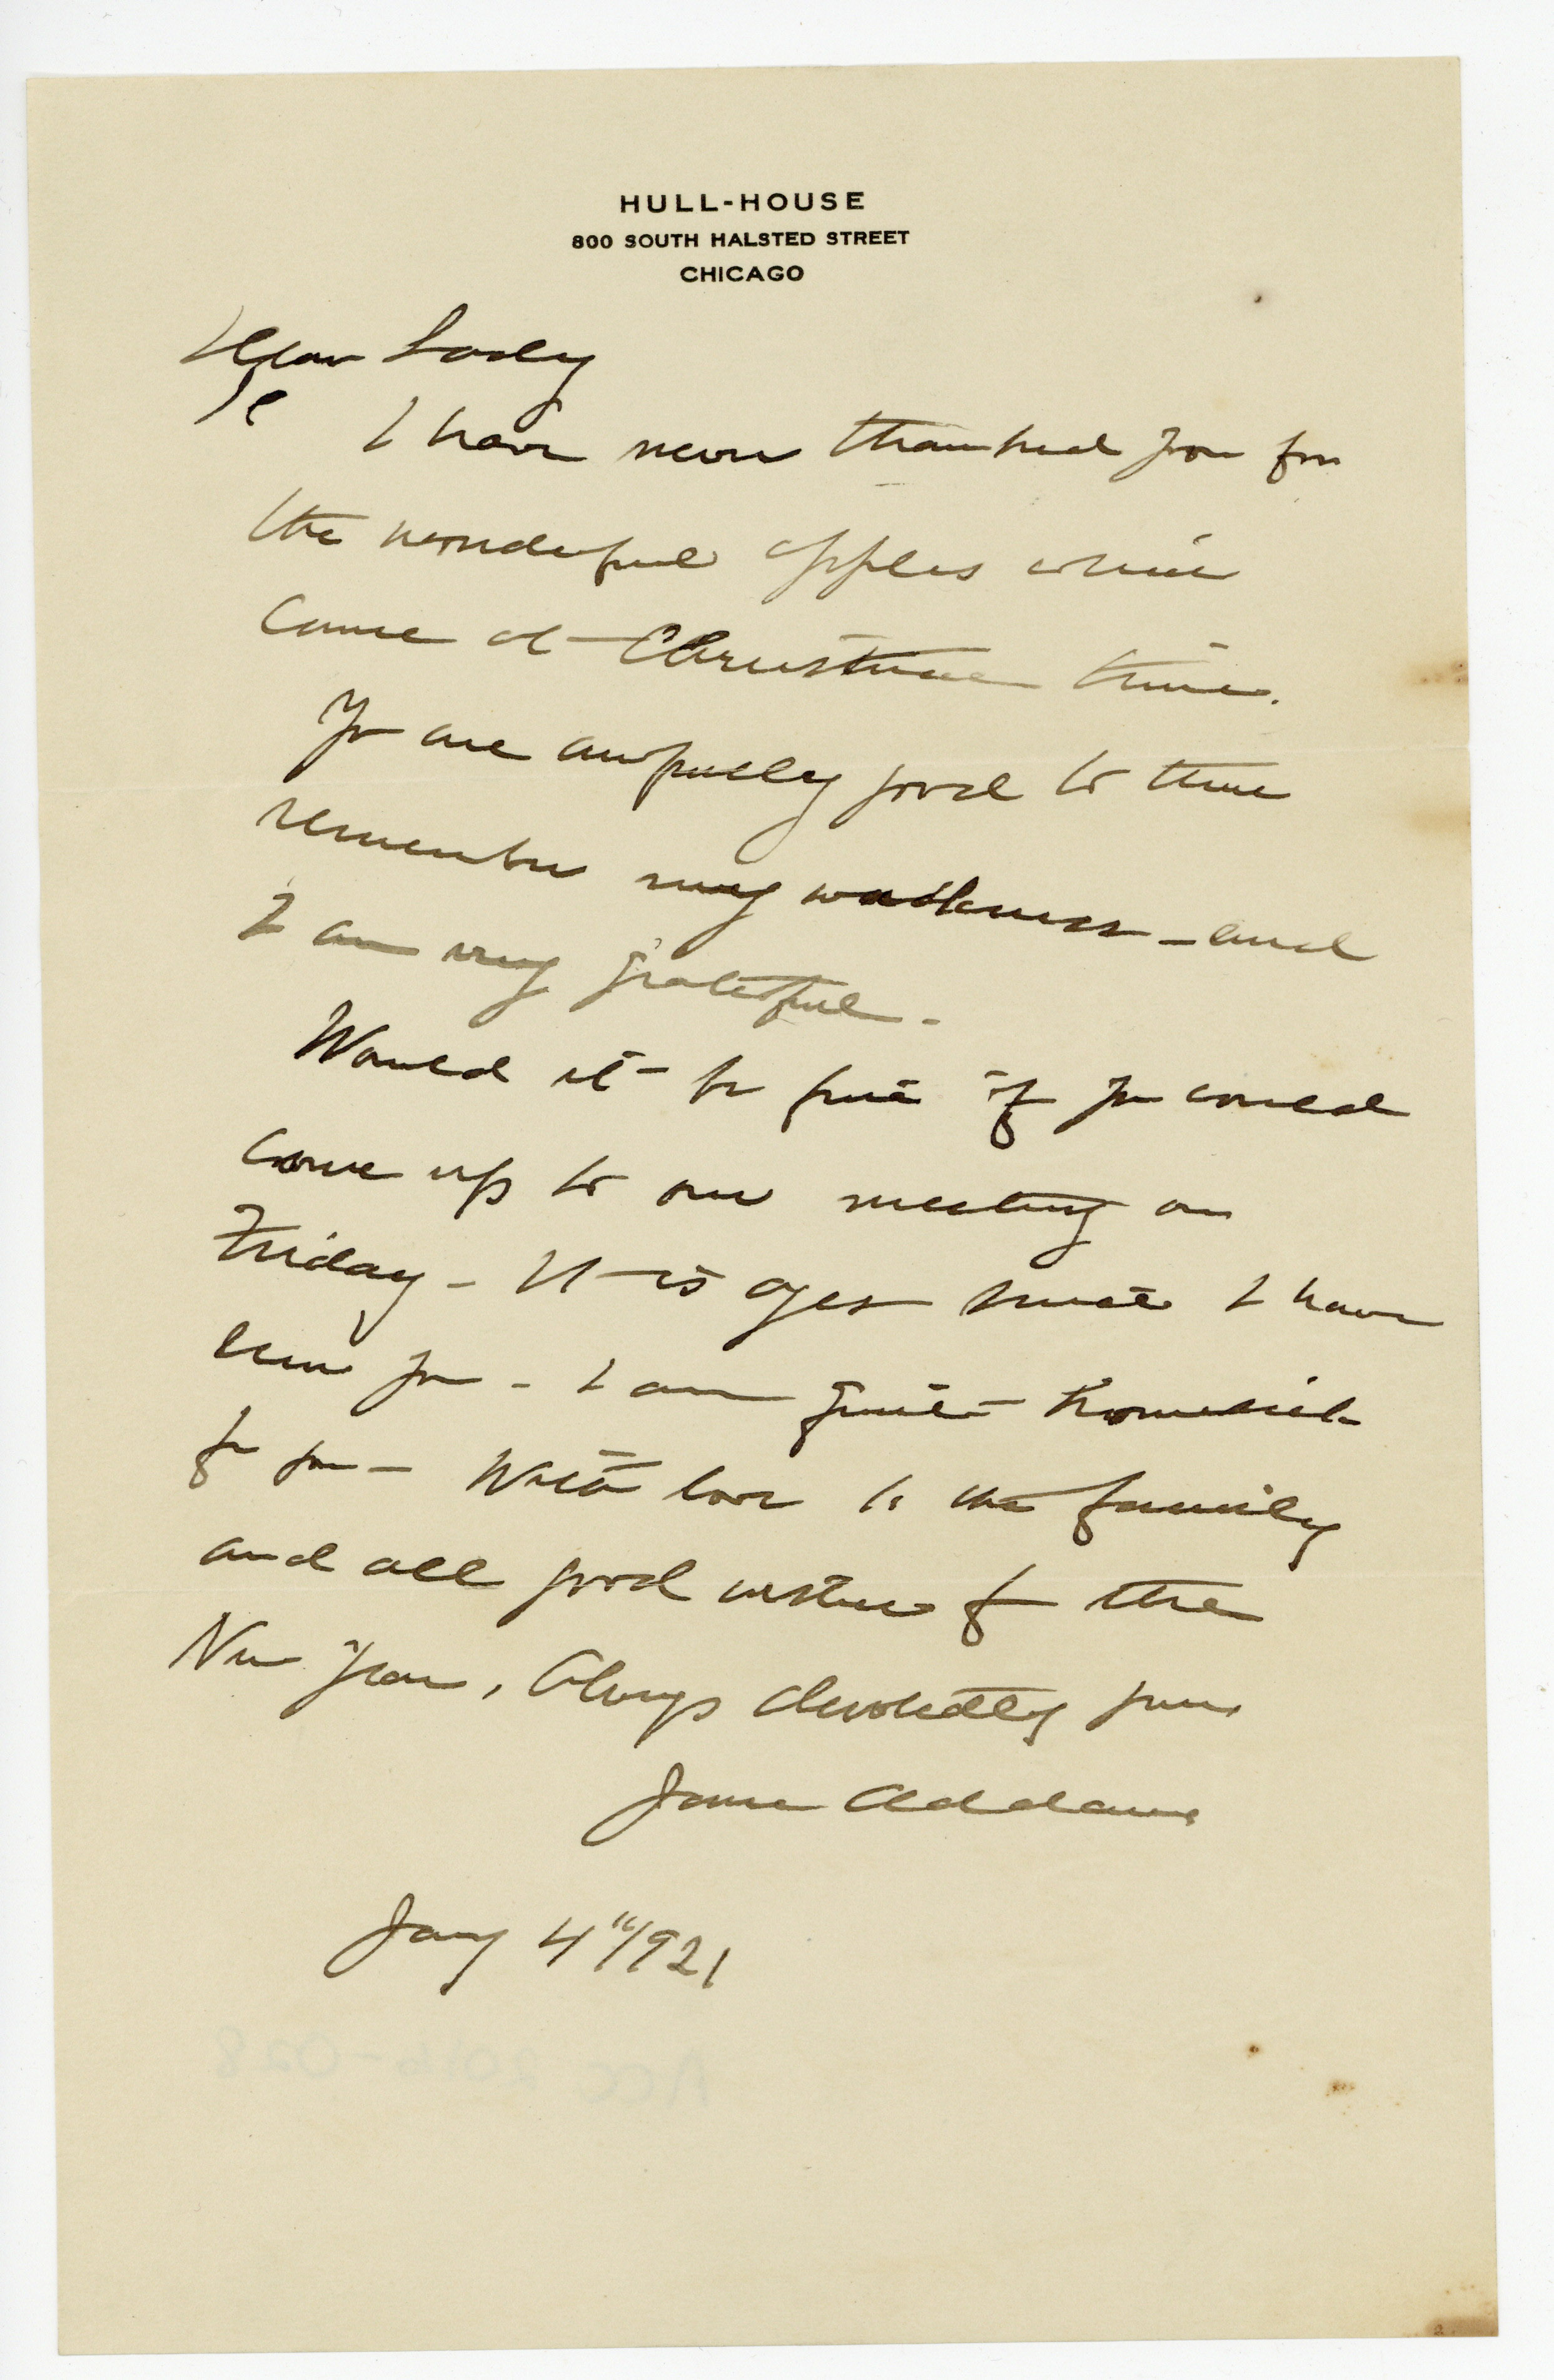 HULL-HOUSE
800 SOUTH HALSTED STREET
CHICAGO
Dear Lady
I have never thanked you for
the wonderful apples which
came at Christmas time.
You are awfully good to thus
remember my weakness - and
I am very grateful -
Would it be fine if you could
come up to our meeting on
Friday - It is ages since I have
seen you - I am quite homesick
for you - With love to the family
and all good wishes for the
New Year, Always devotedly yours
Jane Addams
Jany 4" 1921
ACC 2016-028